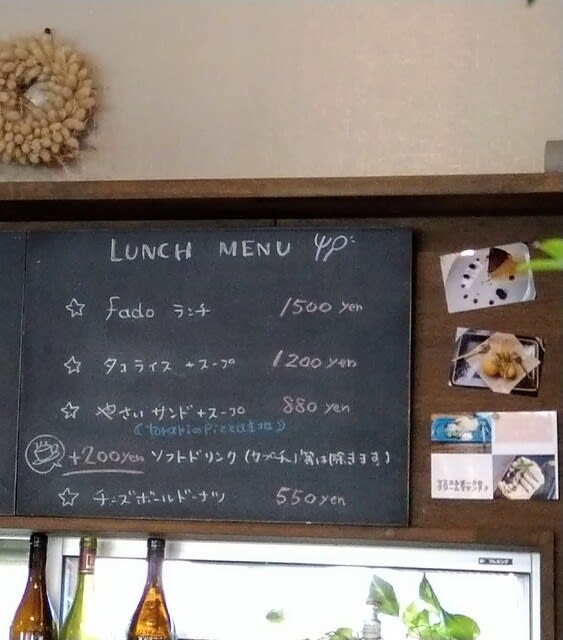 LUNCH MENU
☆ fado ランチ 1500 yen
☆ タコライス +スープ 1200 yen
☆ やさい サンド+スープ 880 yen
(torakiのpizza生地)
+200yen ソフトドリンク (カプチーノ等は除きます)
☆ チーズボールドーナツ 550 yen